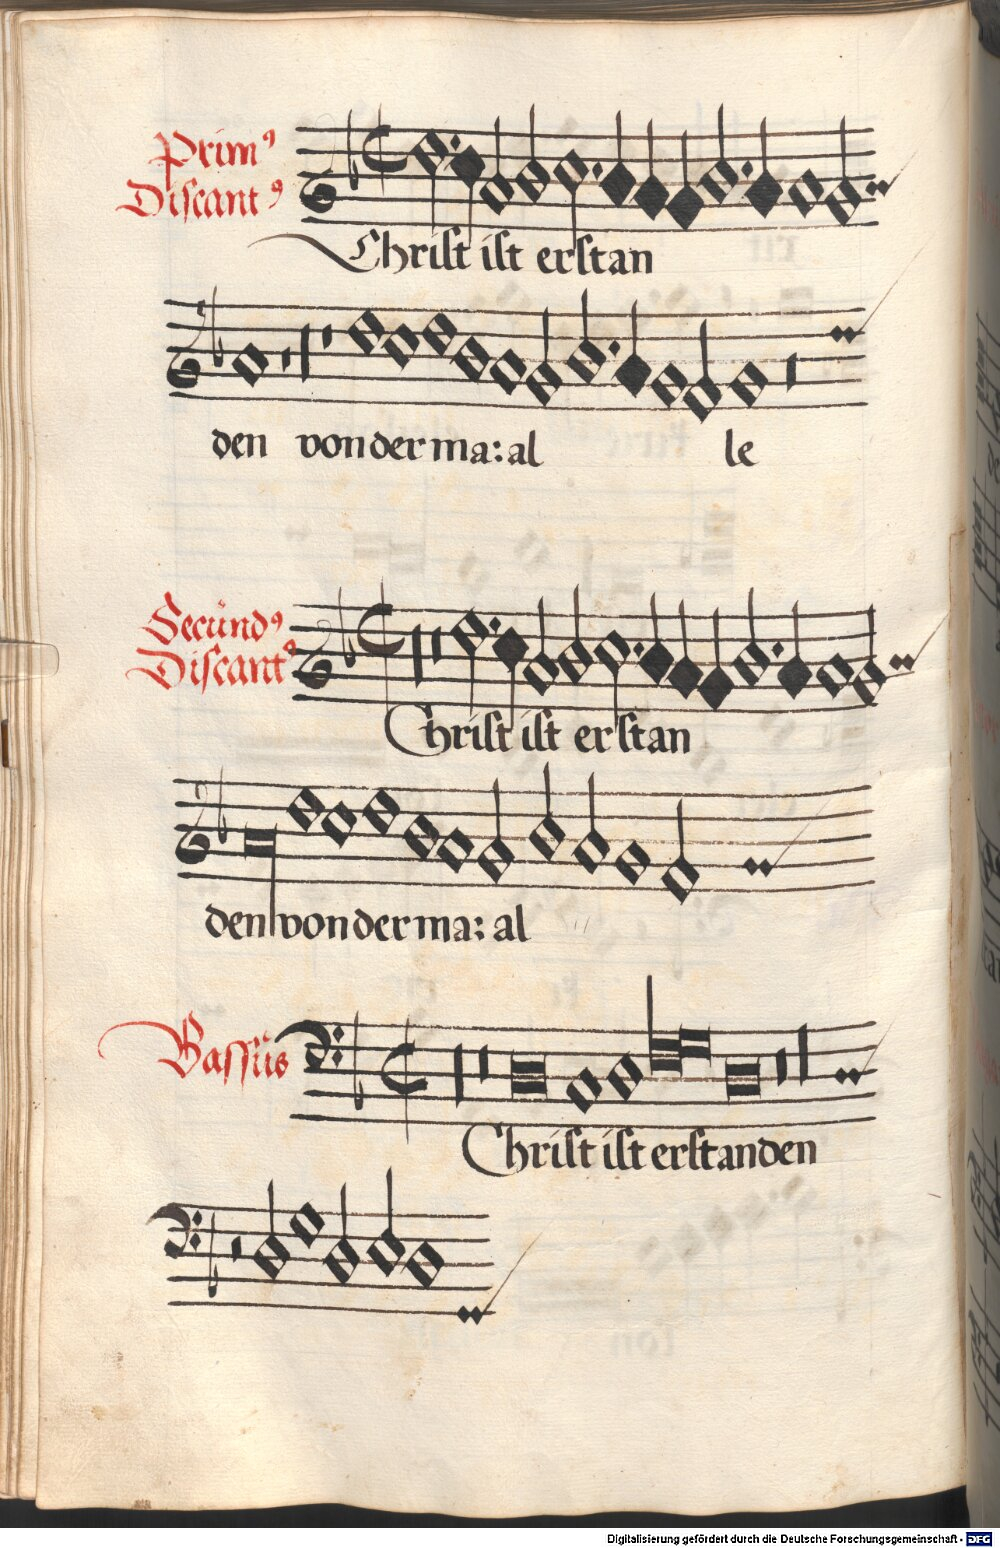 Primꝰ
Discantꝰ
Christ ist erstan
den von der ma: al le
Secundꝰ
Discantꝰ
Christ ist erstan
den von der ma: al
Bassus
Christ ist erstanden
Digitalisierung gefördert durch die Deutsche Forschungsgemeinschaft - DFG